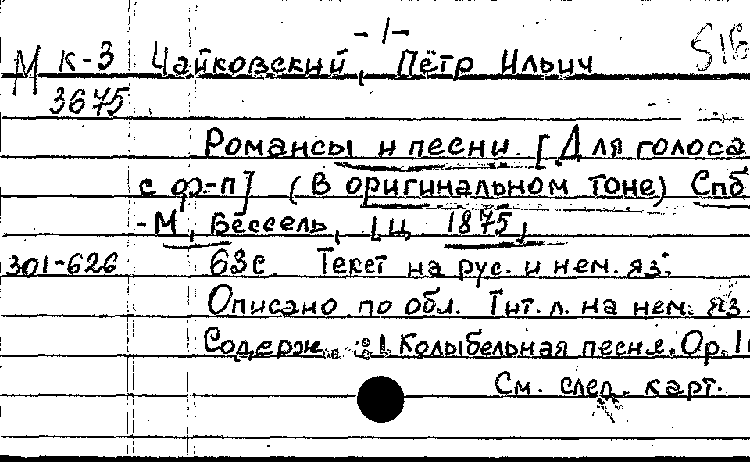 -1-
М К-3 Чайковский, Пётр Ильич 516
3675
Романсы и песни. [Для голоса
с ф-п] (В оригинальном тоне) Спб
-М, Бессель, [ц. 1875]
301-626 63с. Текст на рус. и нем. яз.
Описано по обл. Тит. л. на нем. яз.
Содерж.: 1. Колыбельная песня. Ор. 16
См. след. карт.